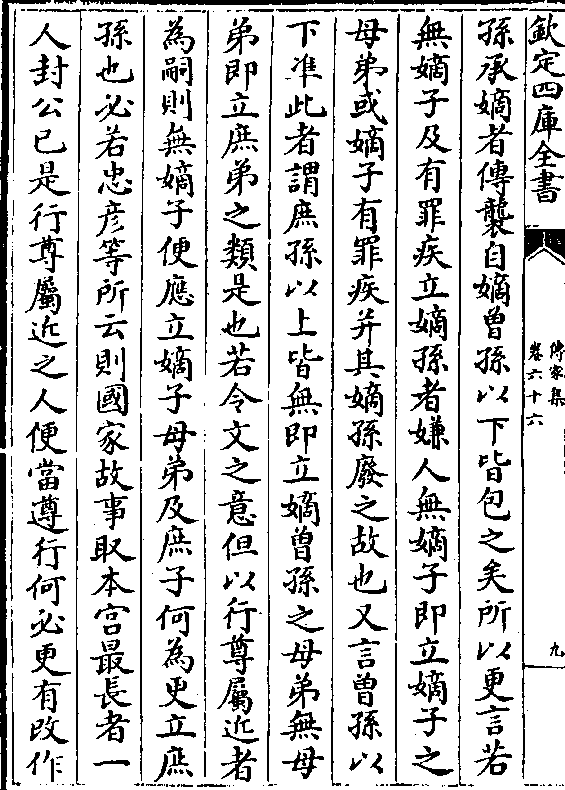 欽定四庫全書
傳家集
卷六十六
九
孫承嫡者傳襲自嫡曽孫以下皆包之矣所以更言若
無嫡子及有罪疾立嫡孫者嫌人無嫡子即立嫡子之
母弟或嫡子有罪疾并其嫡孫廢之故也又言曽孫以
下准此者謂庶孫以上皆無即立嫡曽孫之母弟無母
弟即立庶弟之類是也若令文之意但以行尊屬近者
為嗣則無嫡子便應立嫡子母弟及庶子何為更立庶
孫也必若忠彦等所云則國家故事取本宫最長者一
人封公已是行尊屬近之人便當遵行何必更有改作